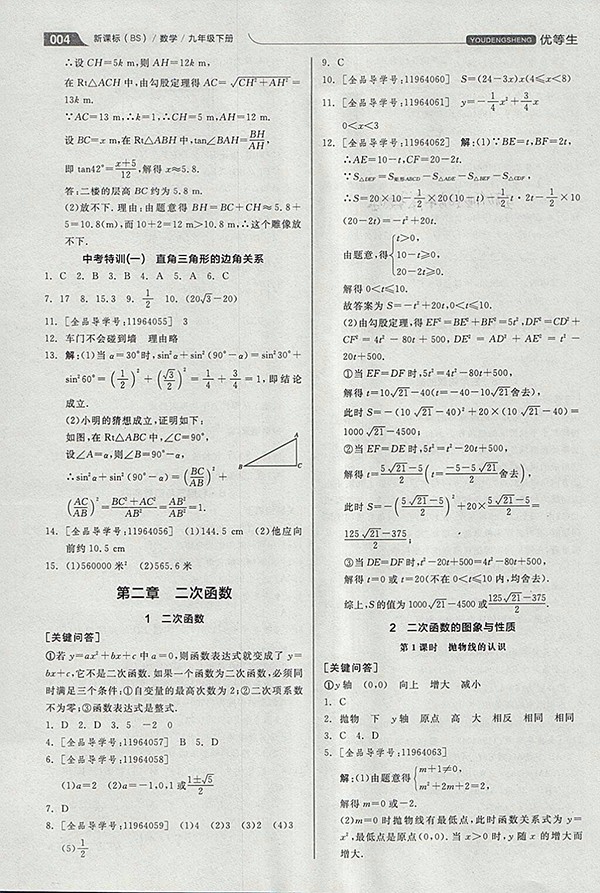 004 新课标(BS)/数学/九年级下册
YOUDENGSHENG 优等生
∴设 CH=5k m,则 AH=12k m,
在 Rt△ACH 中,由勾股定理得 AC=√(CH²+AH²)=
13k m.
∵AC=13 m,∴k=1,∴CH=5 m,AH=12 m.
设 BC=x m,在 Rt△ABH 中,tan∠BAH=BH/AH,
即 tan42°=(x+5)/12,解得 x≈5.8.
答:二楼的层高 BC 约为 5.8 m.
(2)放不下.理由:由题意得 BH=BC+CH≈5.8+
5=10.8(m),而 10+2=12 m>10.8 m,∴这个雕像放
不下.
中考特训(一) 直角三角形的边角关系
1. C 2. B 3. B 4. A 5. A 6. C
7. 17 8. 15.3 9. 1/2 10. (20√3-20)
11. [全品导学号:11964055] 3
12. 车门不会碰到墙 理由略
13. 解:(1)当 α=30°时,sin²α+sin²(90°-α)=sin²30°+
sin²60°=(1/2)²+(√3/2)²=1/4+3/4=1,即结论
成立.
(2)小明的猜想成立,证明如下:
如图,在 Rt△ABC 中,∠C=90°,
设∠A=α,则∠B=90°-α,
∴sin²α+sin²(90°-α)=(BC/AB)²+
(AC/AB)²=(BC²+AC²)/AB²=AB²/AB²=1.
A
B C
14. [全品导学号:11964056] (1)144.5 cm (2)他应向
前约 10.5 cm
15. (1)560000 米² (2)565.6 米
第二章 二次函数
1 二次函数
[关键问答]
①若 y=ax²+bx+c 中 a=0,则函数表达式就变成了 y=
bx+c,它不是二次函数.如果一个函数为二次函数,必须同
时满足三个条件:①自变量的最高次数为 2;②二次项系数
不为零;③函数表达式是整式.
1. D 2. D 3. 5 -2 0
4. [全品导学号:11964057] B 5. D
6. [全品导学号:11964058]
(1)a=2 (2)a=-1,0,1 或(1±√5)/2
7. D
8. [全品导学号:11964059] (1)4 (2)3 (3)2 (4)3
(5)1/2
9. C
10. [全品导学号:11964060] S=(24-3x)x(4≤x<8)
11. [全品导学号:11964061] y=-1/4x²+3/4x
0<x<3
12. [全品导学号:11964062] 解:(1)∵BE=t,BF=2t,
∴AE=10-t,CF=20-2t.
∵S△DEF=S矩形ABCD-S△ADE-S△BEF-S△CDF,
∴S=20×10-1/2×20(10-t)-1/2t·2t-1/2×10
(20-2t)=-t²+20t.
由题意,得{t>0,
10-t≥0,
20-2t≥0.
解得 0<t≤10.
故答案为 S=-t²+20t,0<t≤10.
(2)由勾股定理,得 EF²=BE²+BF²=5t²,DF²=CD²+
CF²=4t²-80t+500,DE²=AD²+AE²=t²-
20t+500.
①当 EF=DF 时,5t²=4t²-80t+500,
解得 t=10√21-40(t=-40-10√21舍去),
此时 S=-(10√21-40)²+20×(10√21-40)=
1000√21-4500;
②当 EF=DE 时,5t²=t²-20t+500,
解得 t=(5√21-5)/2(t=(-5-5√21)/2舍去),
此时 S=-((5√21-5)/2)²+20×(5√21-5)/2=
(125√21-375)/2;
③当 DE=DF 时,t²-20t+500=4t²-80t+500,
解得 t=0 或 t=20(不在 0<t≤10 内,均舍去).
综上,S 的值为 1000√21-4500 或(125√21-375)/2.
2 二次函数的图象与性质
第1课时 抛物线的认识
[关键问答]
①y 轴 (0,0) 向上 增大 减小
1. C
2. 抛物 下 y 轴 原点 高 大 相反 相同 相同
3. C 4. D
5. [全品导学号:11964063]
解:(1)由题意得{m+1≠0,
m²+2m+2=2,
解得 m=0 或-2.
(2)m=0 时抛物线有最低点,此时函数关系式为 y=
x²,最低点是原点(0,0).当 x>0 时,y 随 x 的增大而
增大.